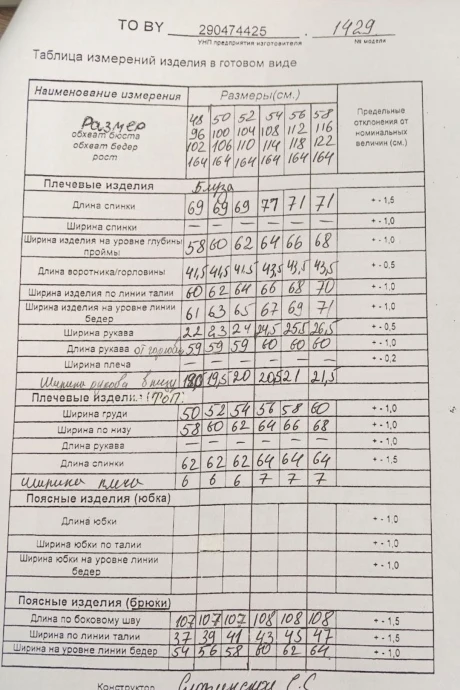 TO BY 290474425 . 1429
УНП предприятия изготовителя № модели
Таблица измерений изделия в готовом виде
Наименование измерения Размеры(см.) Предельные отклонения от номинальных величин (см.)
Размер 48 50 52 54 56 58
обхват бюста 96 100 104 108 112 116
обхват бедер 102 106 110 114 118 122
рост 164 164 164 164 164 164
Плечевые изделия Блуза
Длина спинки 69 69 69 71 71 71 + - 1,5
Ширина спинки — — — — — — + - 1,0
Ширина изделия на уровне глубины проймы 58 60 62 64 66 68 + - 1,0
Длина воротника/горловины 41,5 41,5 41,5 43,5 43,5 43,5 + - 0,5
Ширина изделия по линии талии 60 62 64 66 68 70 + - 1,0
Ширина изделия на уровне линии бедер 61 63 65 67 69 71 + - 1,0
Ширина рукава 22 23 24 24,5 25,5 26,5 + - 0,5
Длина рукава от горлов 59 59 59 60 60 60 + - 1,0
Ширина плеча — — — — — — + - 0,2
Ширина рукава внизу 19,5 20 20,5 21 21,5
Плечевые изделия (Топ)
Ширина груди 50 52 54 56 58 60 + - 1,0
Ширина по низу 58 60 62 64 66 68 + - 1,0
Длина рукава — — — — — — + - 1,0
Длина спинки 62 62 62 64 64 64 + - 1,5
Ширина плеча 6 6 6 7 7 7
Поясные изделия (юбка)
Длина юбки + - 1,0
Ширина юбки по талии + - 1,0
Ширина юбки на уровне линии бедер + - 1,0
Поясные изделия (брюки)
Длина по боковому шву 107 107 107 108 108 108 + - 1,5
Ширина по линии талии 37 39 41 43 45 47 + - 1,5
Ширина на уровне линии бедер 54 56 58 60 62 64 + - 1,0
Конструктор С.С.